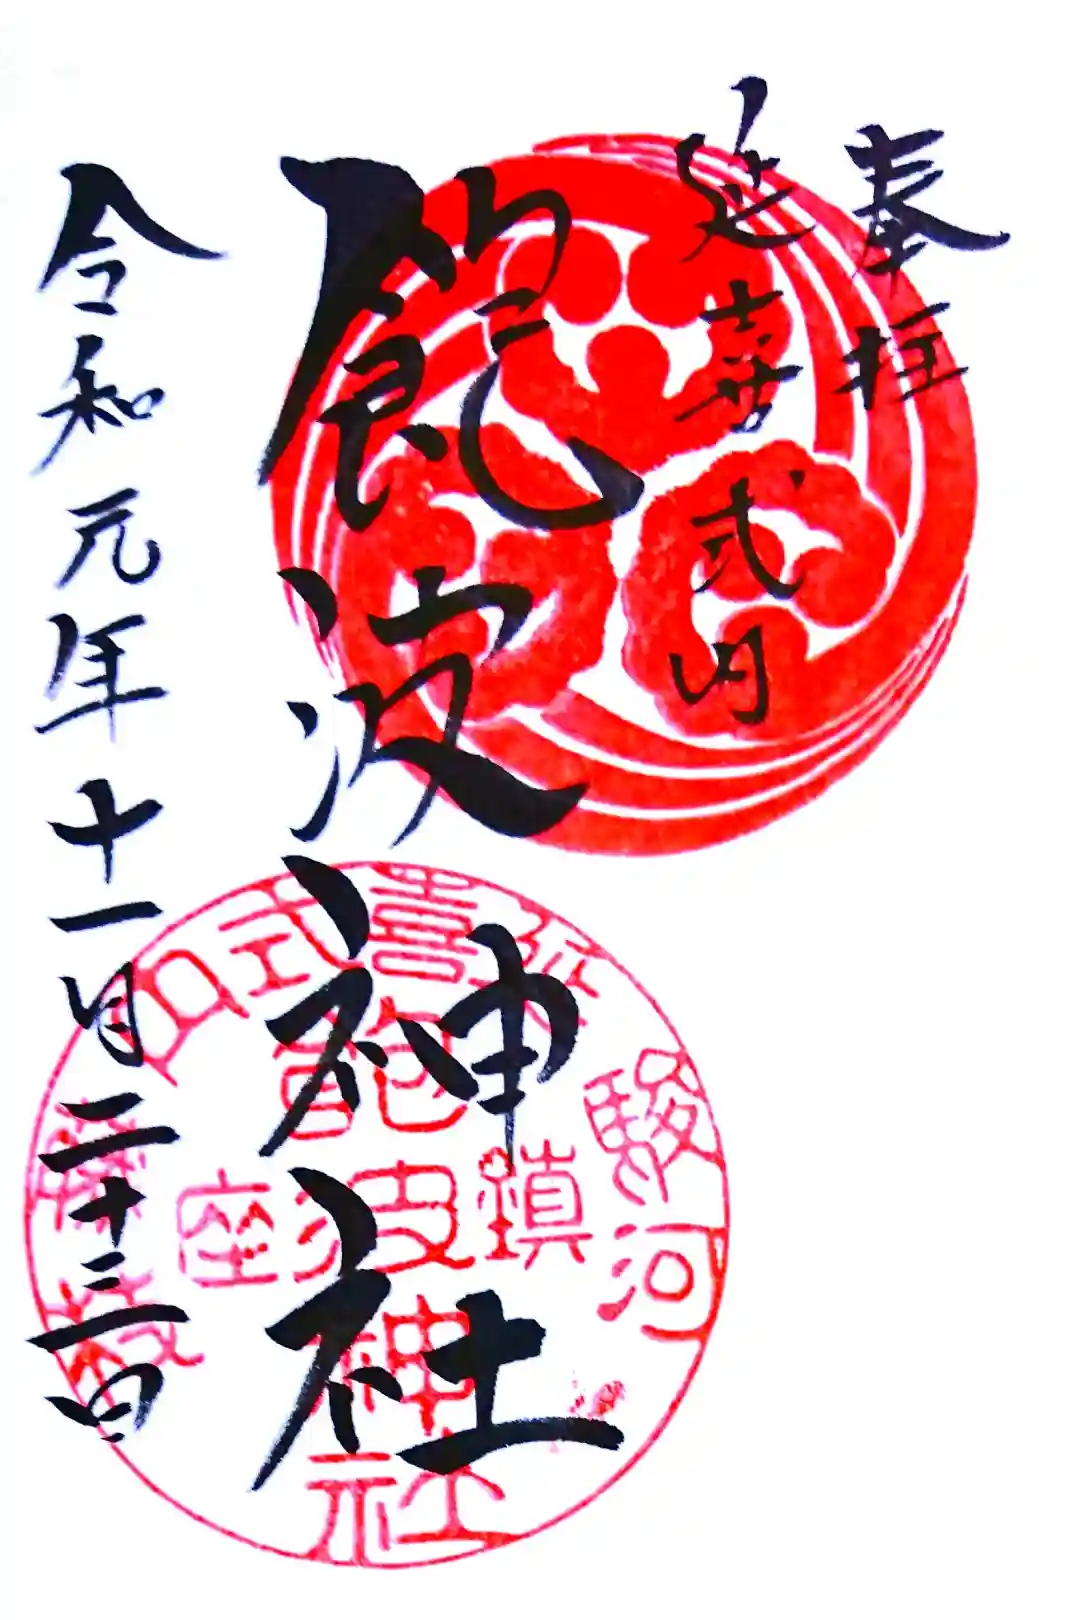 奉拝
延喜式内
飽波神社
令和元年十一月二十三日
延喜式内
駿河
藤枝
鎮座
飽波神社